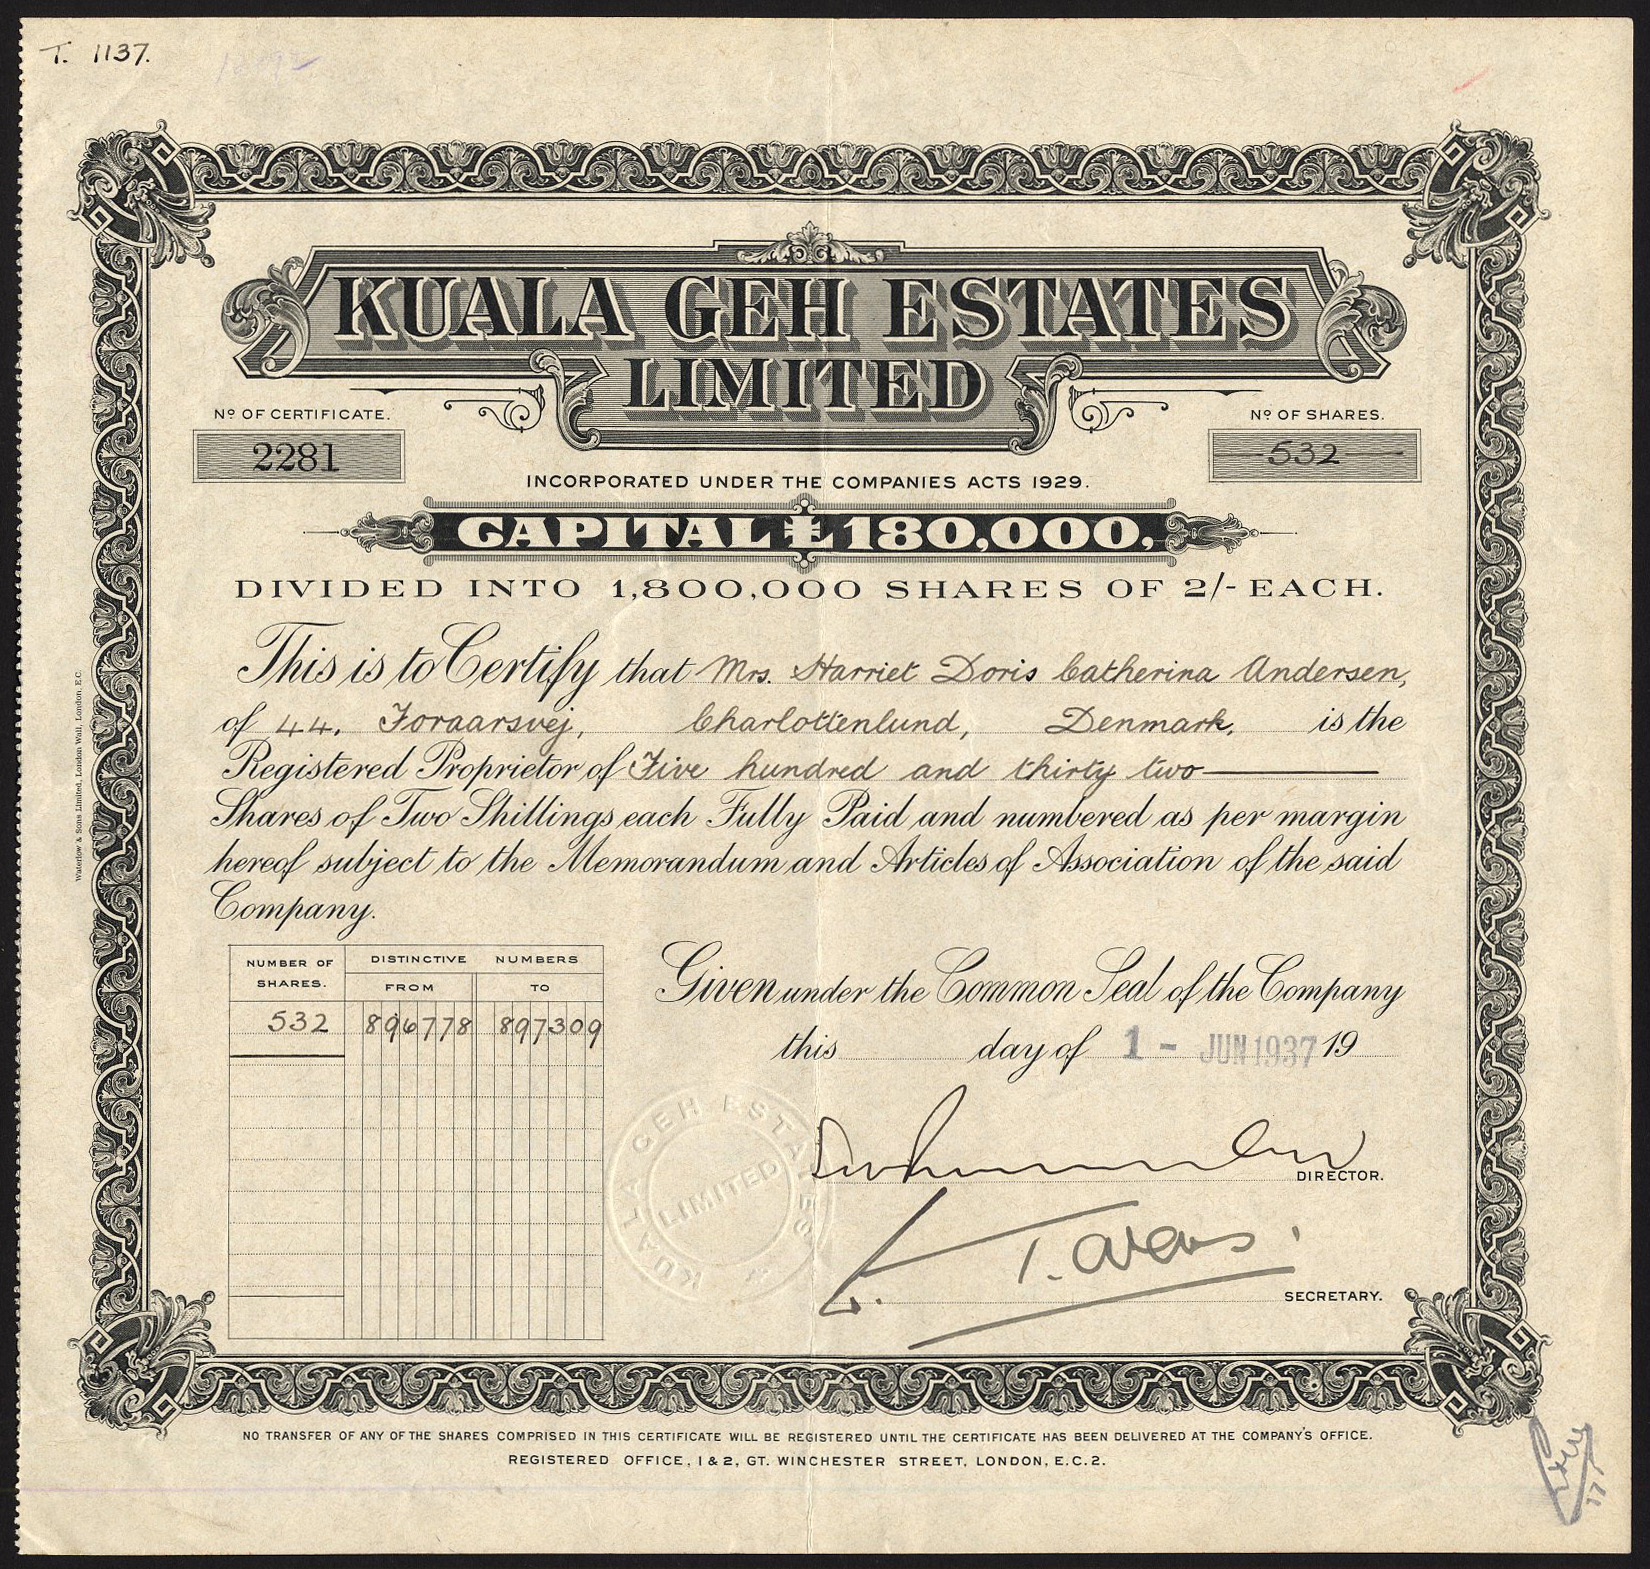 T. 1137.
KUALA GEH ESTATES
LIMITED
Nº OF CERTIFICATE.
2281
Nº OF SHARES.
532
INCORPORATED UNDER THE COMPANIES ACTS 1929.
CAPITAL £180,000,
DIVIDED INTO 1,800,000 SHARES OF 2/- EACH.
This is to Certify that Mrs. Harriet Doris Catherina Andersen,
of 44. Foraarsvej, Charlottenlund, Denmark, is the
Registered Proprietor of Five hundred and thirty two
Shares of Two Shillings each Fully Paid and numbered as per margin
hereof subject to the Memorandum and Articles of Association of the said
Company.
NUMBER OF SHARES. DISTINCTIVE NUMBERS
FROM TO
532 896778 897309
Given under the Common Seal of the Company
this day of 1 - JUN 1937 19
KUALA GEH ESTATES
LIMITED
DIRECTOR.
SECRETARY.
NO TRANSFER OF ANY OF THE SHARES COMPRISED IN THIS CERTIFICATE WILL BE REGISTERED UNTIL THE CERTIFICATE HAS BEEN DELIVERED AT THE COMPANY'S OFFICE.
REGISTERED OFFICE, 1 & 2, GT. WINCHESTER STREET, LONDON, E.C.2.
Waterlow & Sons Limited, London Wall, London, E.C.